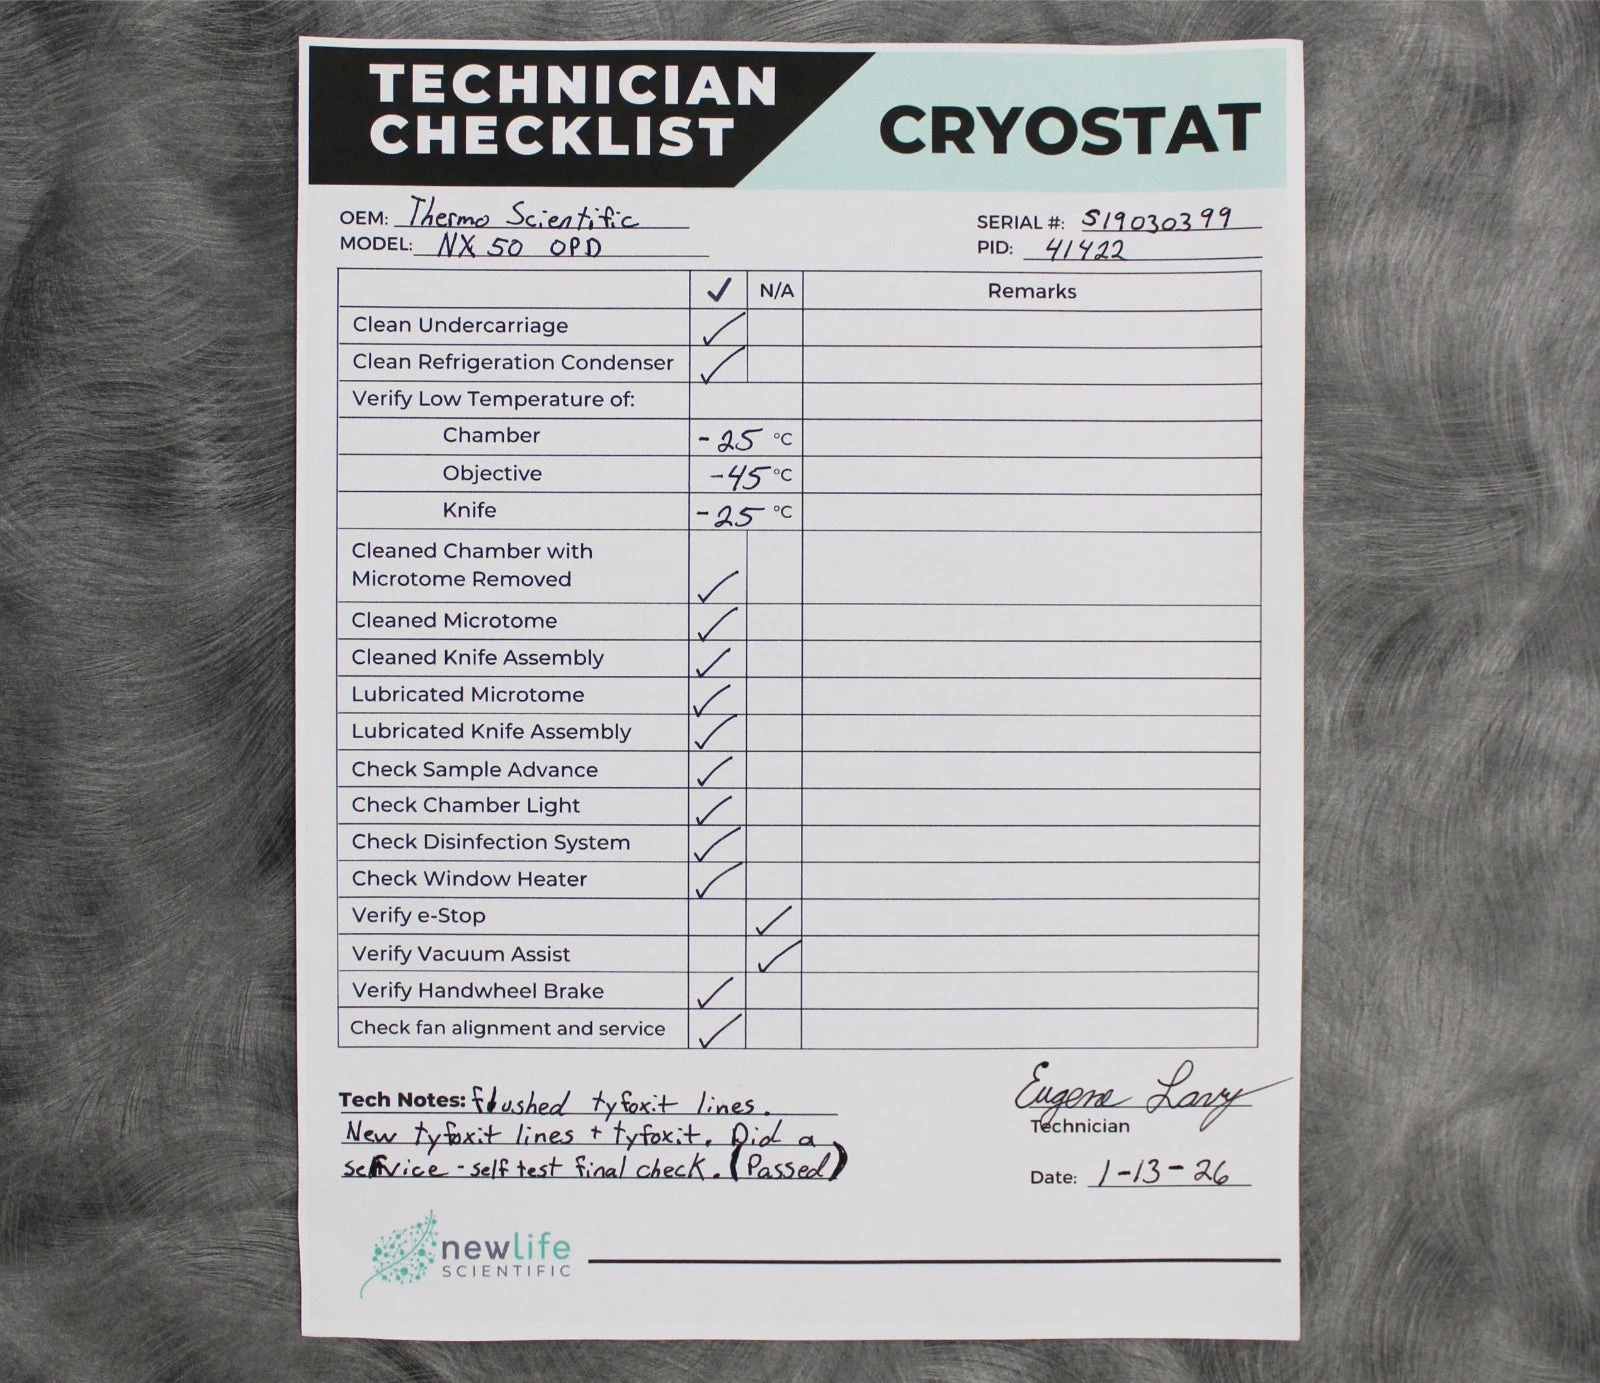 TECHNICIAN
CHECKLIST
CRYOSTAT
OEM: Thermo Scientific
MODEL: NX 50 OPD
SERIAL #: S19030399
PID: 41422
✓ N/A Remarks
Clean Undercarriage ✓
Clean Refrigeration Condenser ✓
Verify Low Temperature of:
Chamber -25 °C
Objective -45 °C
Knife -25 °C
Cleaned Chamber with
Microtome Removed ✓
Cleaned Microtome ✓
Cleaned Knife Assembly ✓
Lubricated Microtome ✓
Lubricated Knife Assembly ✓
Check Sample Advance ✓
Check Chamber Light ✓
Check Disinfection System ✓
Check Window Heater ✓
Verify e-Stop ✓
Verify Vacuum Assist ✓
Verify Handwheel Brake ✓
Check fan alignment and service ✓
Tech Notes: flushed tyfoxit lines.
New tyfoxit lines + tyfoxit. Did a
service - self test final check. (Passed)
Eugene Lavy
Technician
Date: 1-13-26
newlife
SCIENTIFIC